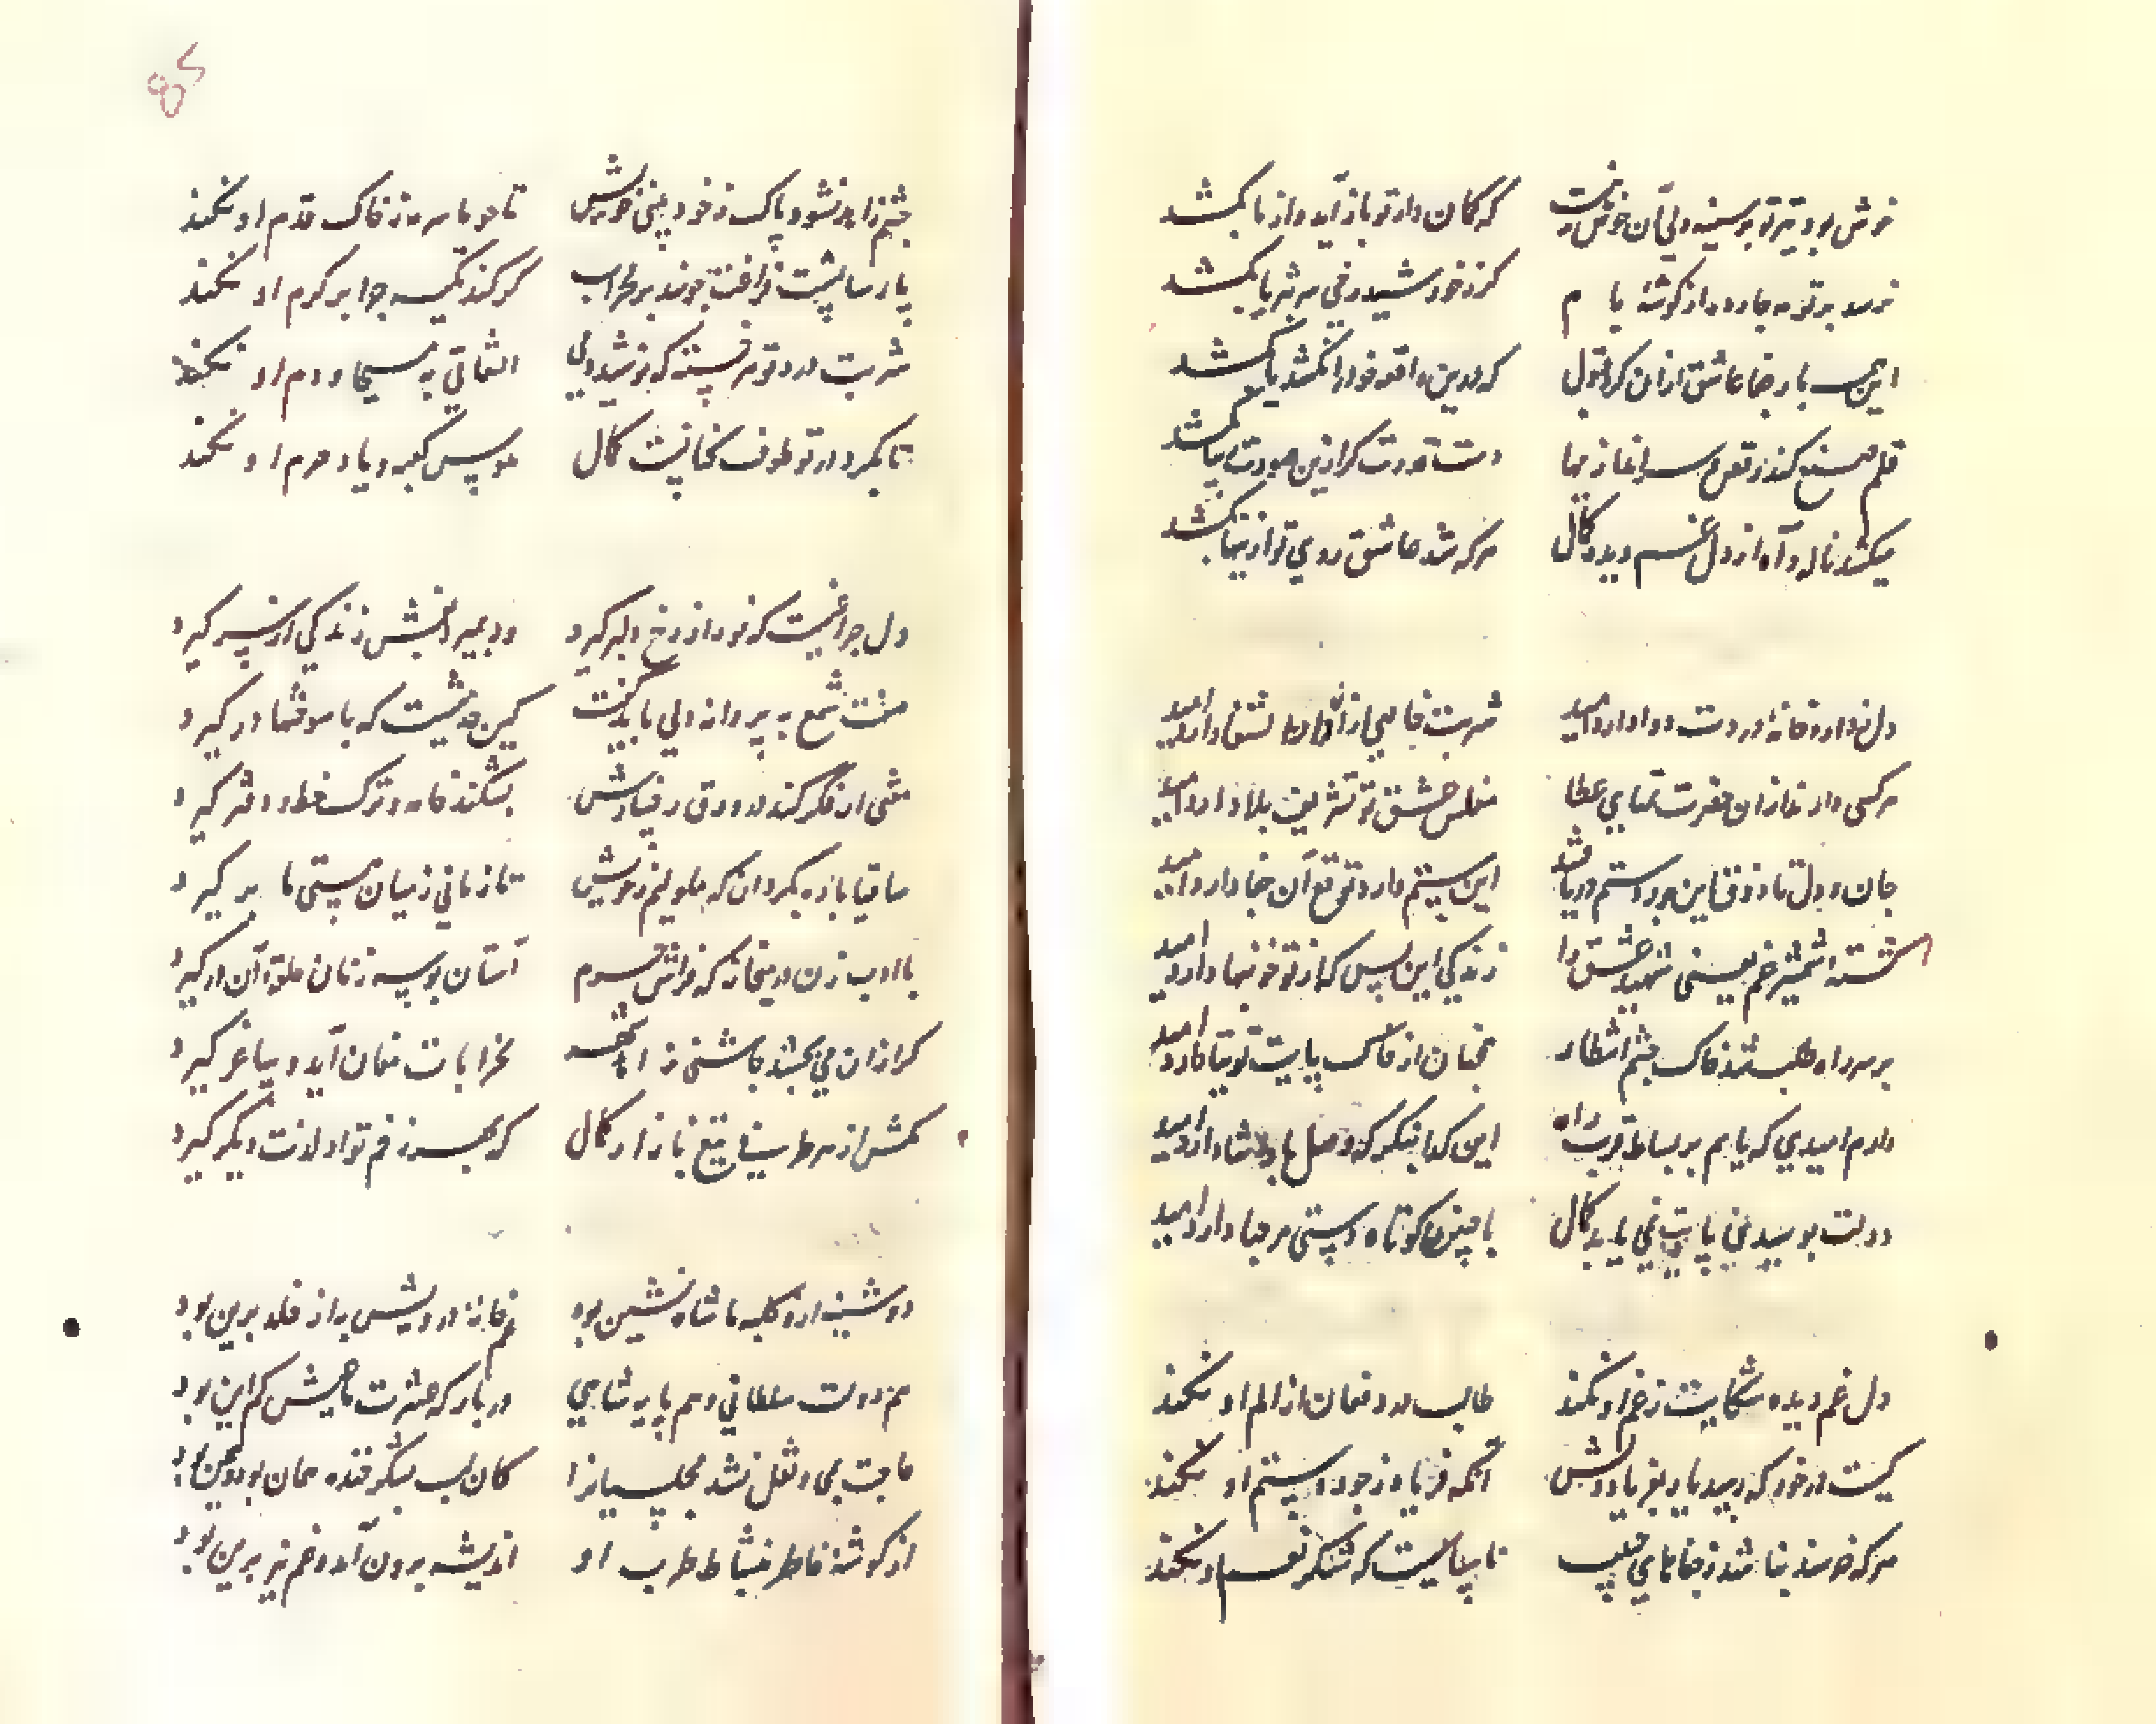 خوش بود تیر تو بر سینه ولی آن خوشتر است که کمان دار تو باز آید و از ما بکشد
نرسد بر تو مه چارده از گوشه بام گر ز خورشید رخی سر به ثریا بکشد
این همه بار جفا عاشق از آن کرد قبول
قلم صنع کند دست قدرت گر ازین صورت زیبا بکشد
میکشد ناله و آه از دل غم دیده کمال هر که شد عاشق روی تو ازینها بکشد
دل ندارد خانه دردت دوا دارد امید شربت خاصی از آن دارالشفا دارد امید
هر کسی دارند ازان حضرت تمنای عطا مفلس عشق تو تشریف بلا دارد امید
جان و دل تا ذوق این جور و ستم دریافتند این ستم دارد توقع آن جفا دارد امید
کشته شمشیر غم یعنی شهید عشق را زندگی این بس که از تو خونبها دارد امید
بر سر راه طلب شد خاک چشم انتظار همچنان از خاک پایت توتیا دارد امید
دارم امیدی که یابم بر بساط قرب راه این گدا بنگر که وصل پادشا دارد امید
دولت بوسیدن پایت نمی یابد کمال با چنین کوتاه دستی مرحبا دارد امید
دل غم دیده شکایت ز غم او نکند طالب درد فغان از الم او نکند
کیست در خور که رسد یار بفریاد دلش آنکه فریاد ز جور و ستم او نکند
هر که خرسند نباشد ز جفاهای حبیب ناسپاسیست که شکر نعم او نکند
چشم زاهد نشود پاک ز خودبینی خویش تا جو ما سرمه ز خاک قدم او نکند
پارسا پشت فراغت چو نهد بر محراب گر کند تکیه چرا بر کرم او نکند
شربت درد تو هر خسته که نوشید دلی التفاتی به مسیحا و دم او نکند
تا بگرد در تو طوف کنانست کمال هوس کعبه و یاد حرم او نکند
دل چراغیست که نور از رخ دلبر گیرد ور بمیرد ز غمش زندگی از سر گیرد
صفت شمع به پروانه دلی باید گفت کین حدیثیست که با سوختها در گیرد
منشی ار فکر کند در ورق رخسارش بشکند خامه و ترک خط و دفتر گیرد
ساقیا باده بگردان که ملولیم ز خویش تا زمانی ز میان هستی ما بر گیرد
با ادب زن در میخانه که فراش حرم آستان بوسه زنان حلقه آن در گیرد
گر ازان می بچشد چاشنی زاهد شهر بخرابات مغان آید و ساغر گیرد
کمش از سر طرب تیغ باز ار کمال که بهر زخم تو او لذت دیگر گیرد
دوشینه در کلبه ما شاه نشین بود غمخانه درویش به از خلد برین بود
هم دولت سلطانی و هم پایه شاهی
حاجت بمی و نقل نشد مجلسیانرا کان لب بشکر خنده همان بود و همین بود
از گوشه خاطر بنشاط طرب او اندیشه برون آمد و غم نیز برین بود